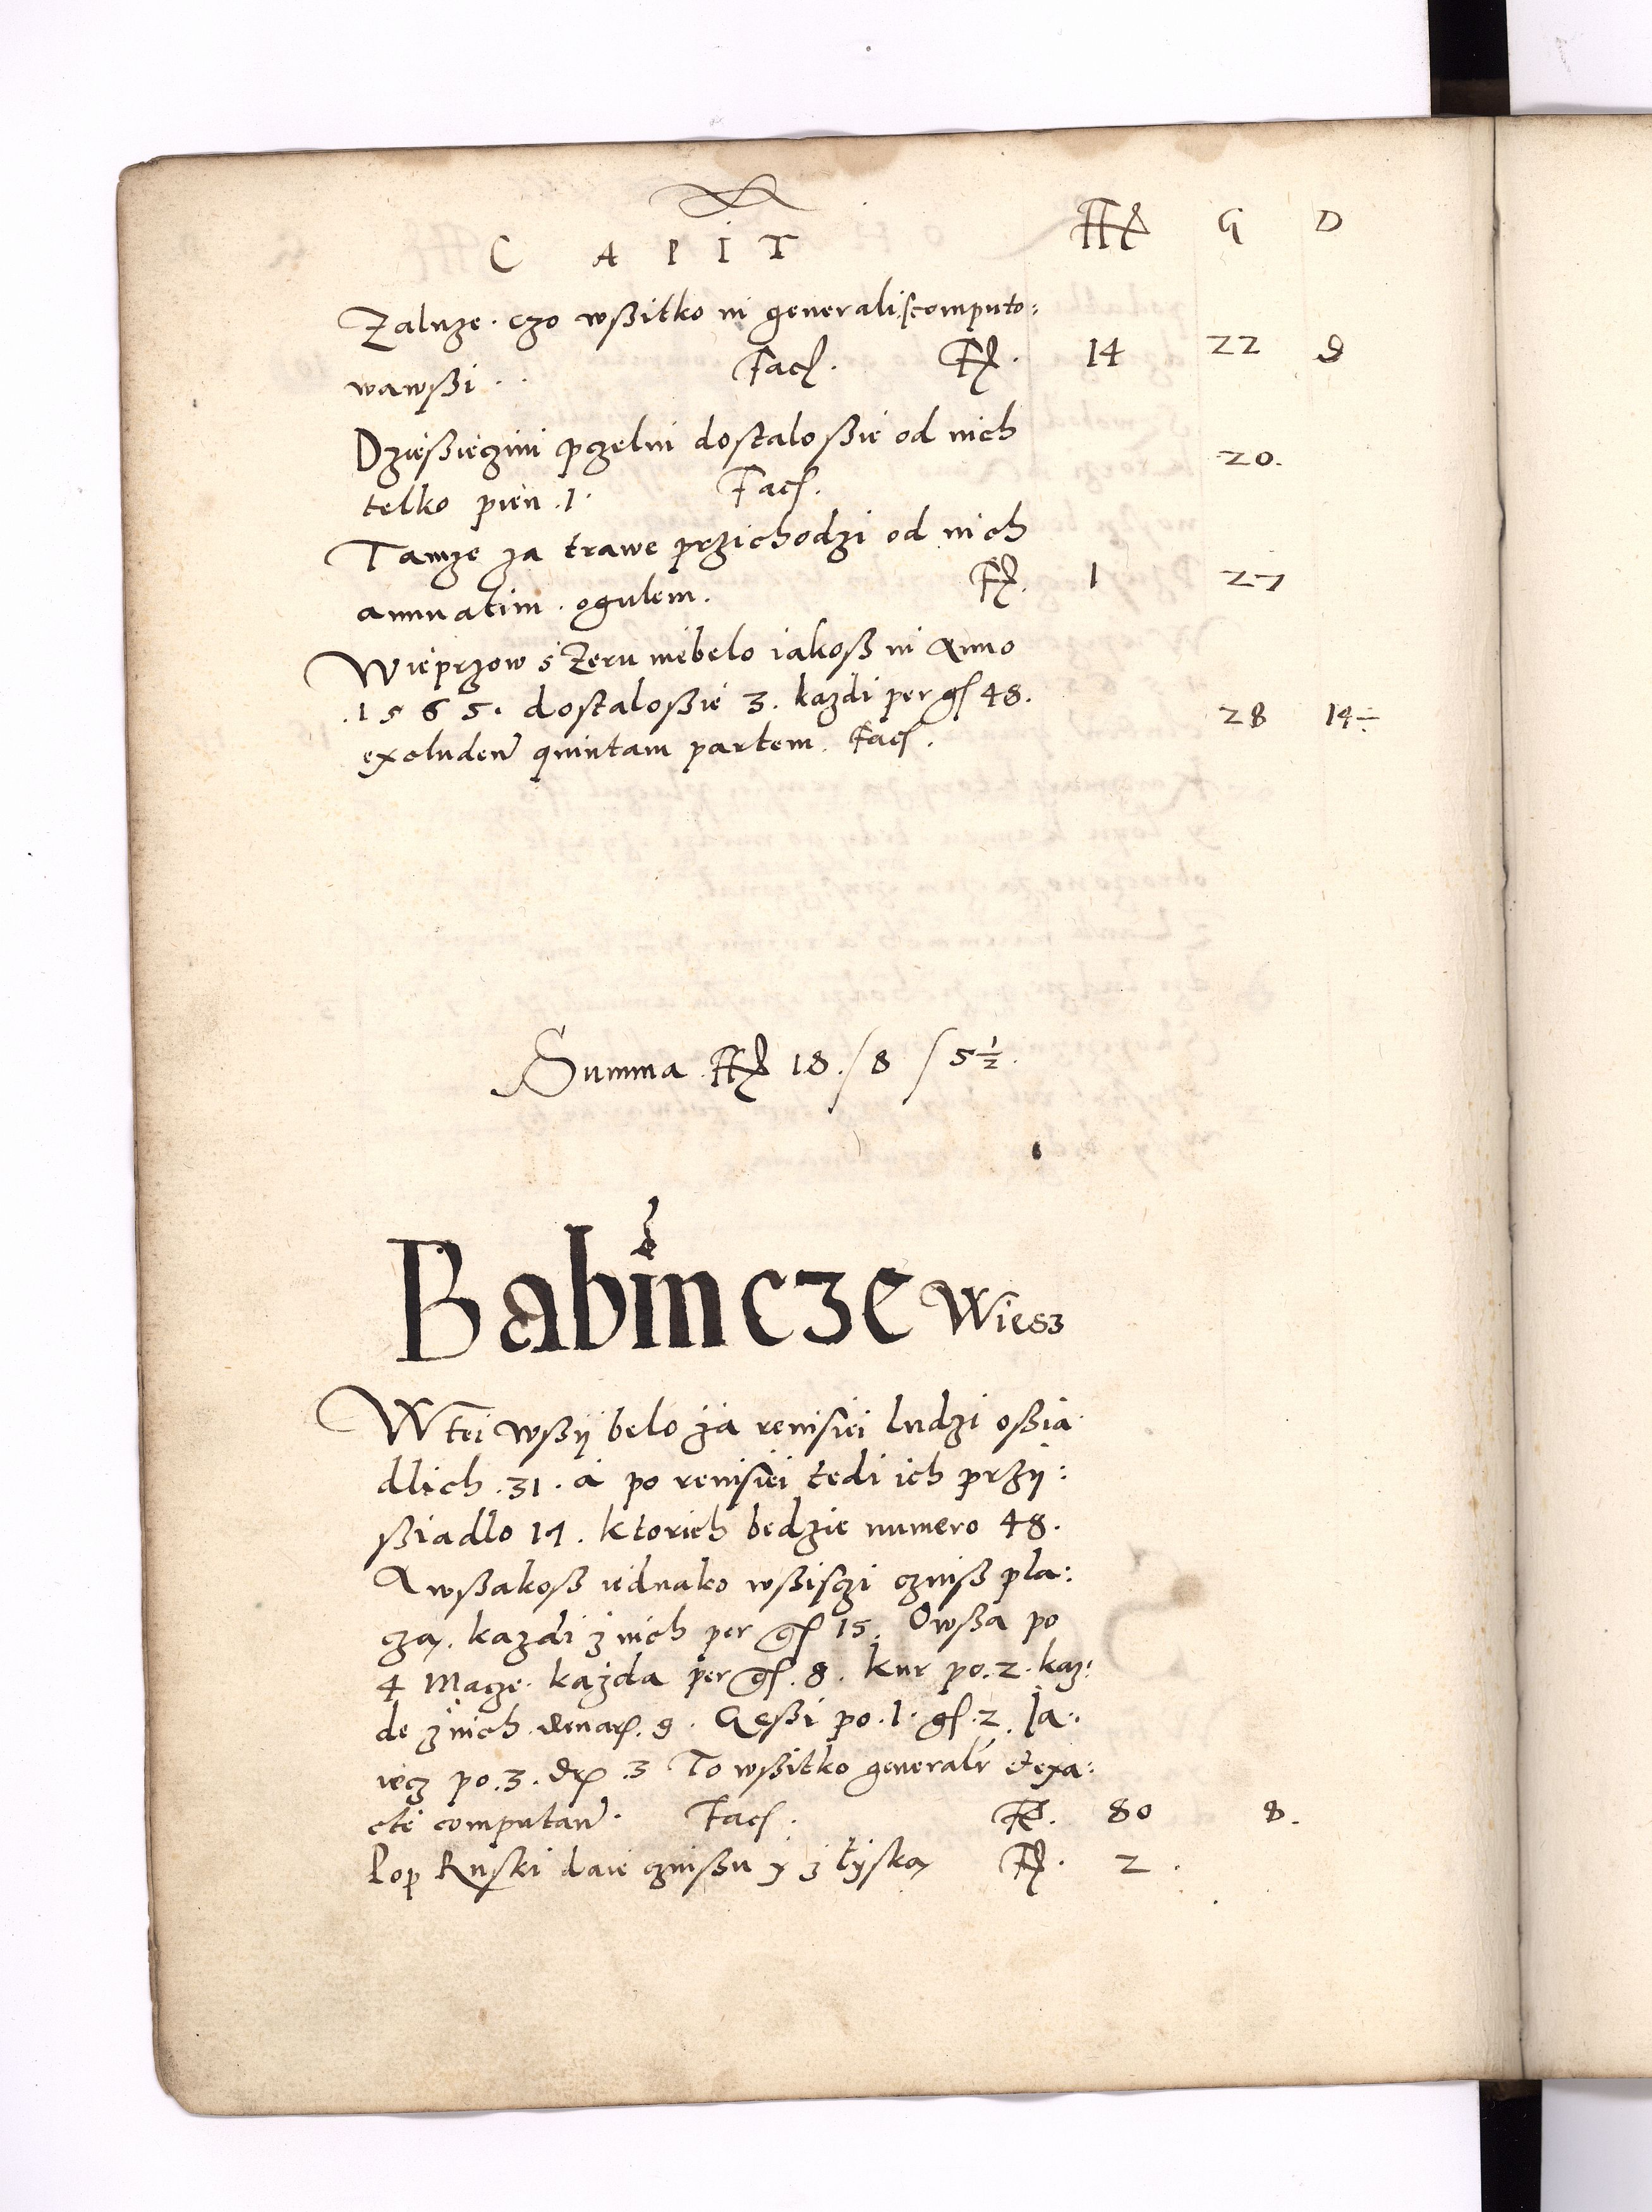 C A P I T Fl G D
Zaluze. czo wßitko in generali computo:
wawßi . . Facs. Fl. 14 22 9
Dzießiezini pzelni dostaloßie od nich
telko pien .1. Facs. 20.
Tamze za trawe przichodzi od nich
annuatim . ogulem. Fl. 1 27
Wieprzow s Zeru niebelo iakoß in Anno
.1565. dostaloßie 3. kazdi per gs 48.
excluden quintam partem. Facs. 28 14÷
Summa Fl 18./8/5½.
Babincze Wiesz
W tei wßÿ belo za reuisiei ludzi oßia
dlich .31. a po reuisiei tedi ich przÿ:
ßiadlo 17. ktorich bedzie numero 48.
A wßakoß iednako wßisczi czniß pla:
cza. kazdi z nich per gs 15. Owßa po
4 Macze. kazda per gs. 8. kur po .2. kaz:
de z nich denars. 9. Gęßi po .1. gs. 2. Ja:
iecz po .3. ds .3 To wßitko generalr et exa:
cte computan. Facs. Fl. 80 8.
Pop Ruski daie cznißu y z łyska Fl. 2.